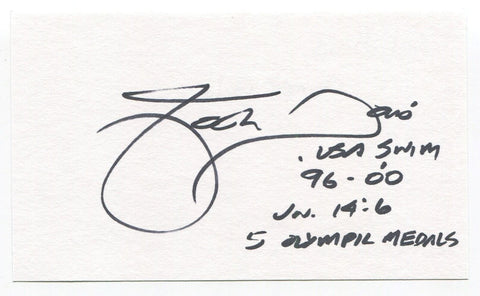 Josh Davis
USA SWIM
96-00
Jn. 14:6
5 OLYMPIC MEDALS